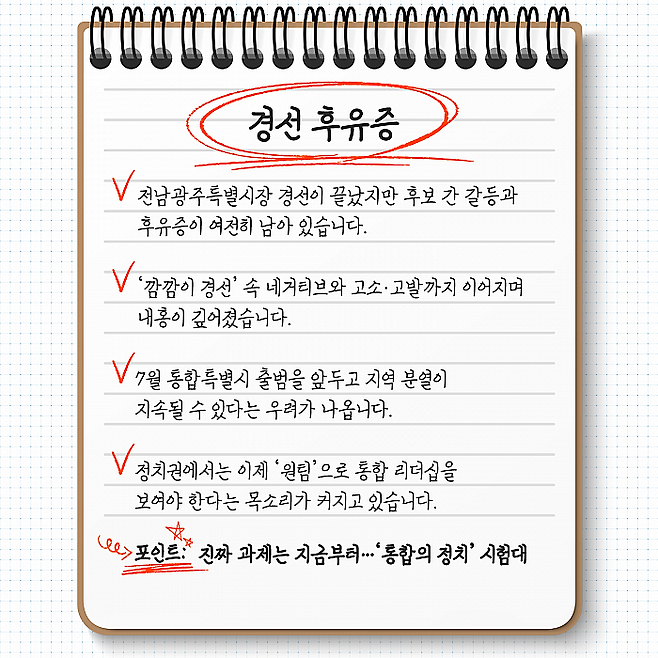 경선 후유증
전남광주특별시장 경선이 끝났지만 후보 간 갈등과
후유증이 여전히 남아 있습니다.
‘깜깜이 경선’ 속 네거티브와 고소·고발까지 이어지며
내홍이 깊어졌습니다.
7월 통합특별시 출범을 앞두고 지역 분열이
지속될 수 있다는 우려가 나옵니다.
정치권에서는 이제 ‘원팀’으로 통합 리더십을
보여야 한다는 목소리가 커지고 있습니다.
포인트: 진짜 과제는 지금부터…‘통합의 정치’ 시험대